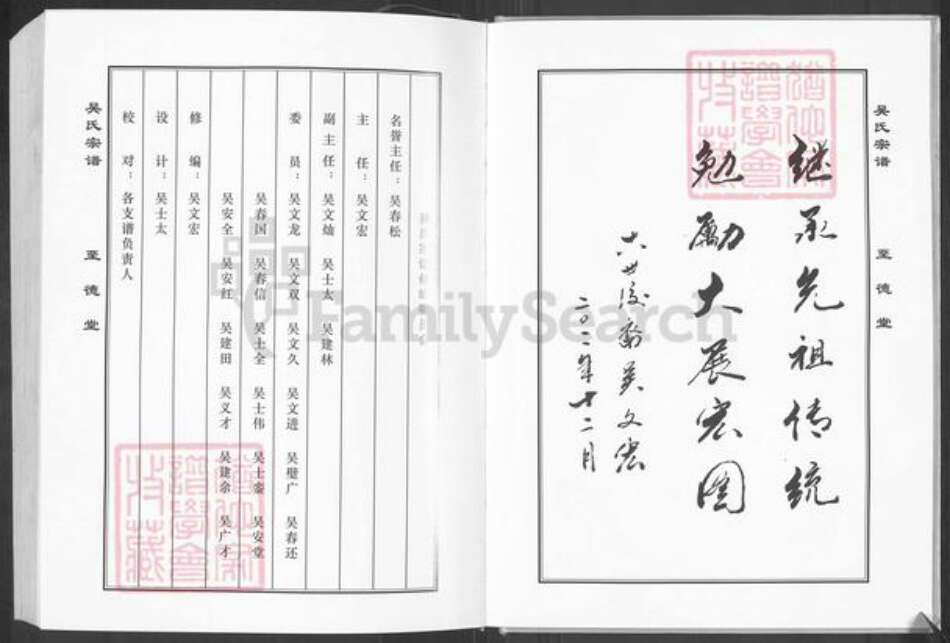 吴氏宗谱
至德堂
继承先祖传统
勉励大展宏图
十八世后裔吴文宏
二〇一一年十二月
名誉主任：吴春松
主任：吴文宏
副主任：吴文灿 吴士太 吴建林
委员：吴文龙 吴文双 吴文久 吴文进 吴璧广 吴春还
吴春国 吴春信 吴士全 吴士伟 吴士銮 吴安堂
吴安全 吴安红 吴建田 吴义才 吴建余 吴广才
修编：吴文宏
设计：吴士太
校对：各支谱负责人
吴氏宗谱
至德堂
FamilySearch